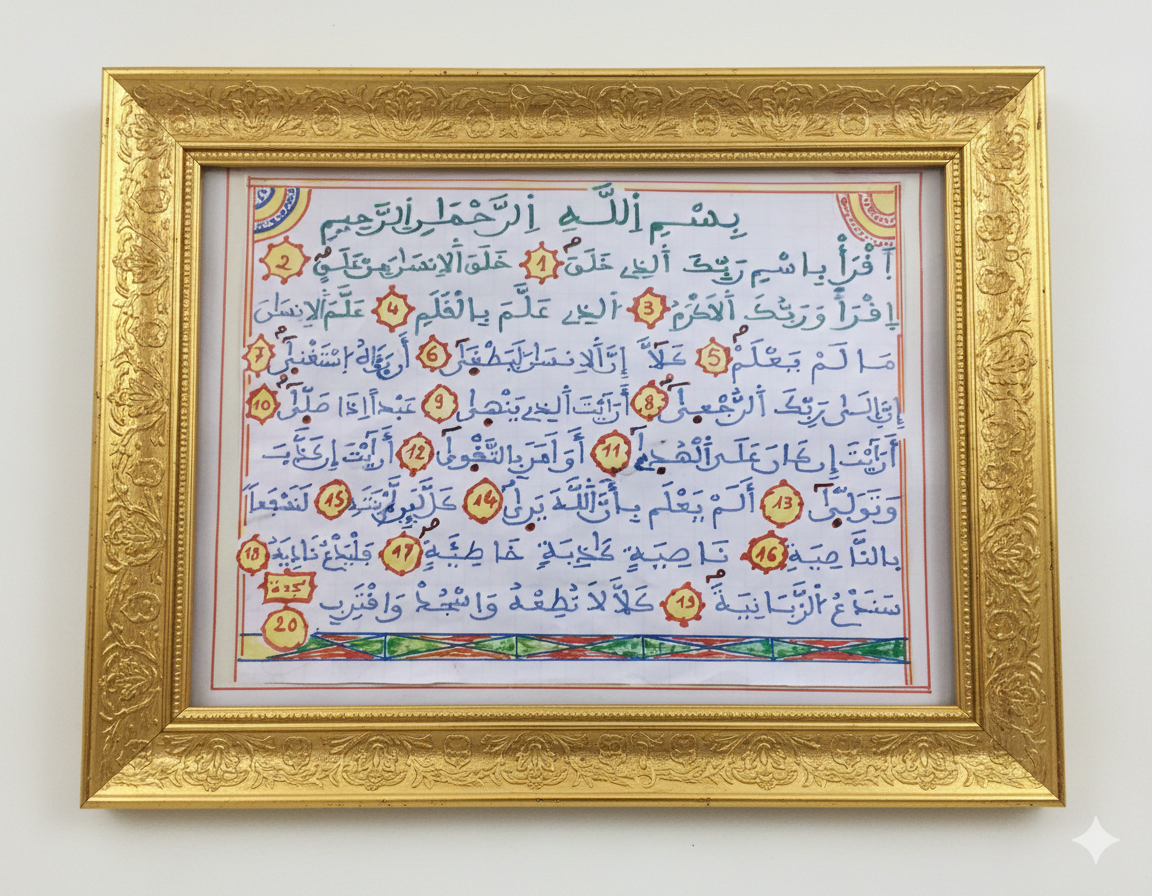 بِسْمِ اِللَّهِ اِلرَّحْمَٰنِ اِلرَّحِيمِ
اِقْرَأْ بِاسْمِ رَبِّكَ اَلذِے خَلَقَ 1 خَلَقَ اَلِانسَٰنَ مِنْ عَلَقٍ 2
اِقْرَأْ وَرَبُّكَ اَلَاكْرَمُ 3 اَلذِے عَلَّمَ بِالْقَلَمِ 4 عَلَّمَ اَلِانسَٰنَ
مَا لَمْ يَعْلَمْ 5 كَلَّا إِنَّ اَلِانسَٰنَ لَيَطْغَىٰ 6 أَن رَّءَاهُ اُسْتَغْنَىٰ 7
إِنَّ إِلَىٰ رَبِّكَ اَلرُّجْعَىٰ 8 أَرَٰيْتَ اَلذِے يَنْهَىٰ 9 عَبْداً اِذَا صَلَّىٰ 10
أَرَٰيْتَ إِن كَانَ عَلَى اَلْهُدَىٰ 11 أَوَ اَمَرَ بِالتَّقْوَىٰ 12 أَرَٰيْتَ إِن كَذَّبَ
وَتَوَلَّىٰ 13 أَلَمْ يَعْلَم بِأَنَّ اَللَّهَ يَرَىٰ 14 كَلَّا لَئِن لَّمْ يَنتَهِ 15 لَنَسْفَعاً
بِالنَّاصِيَةِ 16 نَاصِيَةٍ كَٰذِبَةٍ خَاطِئَةٍ 17 فَلْيَدْعُ نَادِيَهُ 18
سَنَدْعُ اُلزَّبَانِيَةَ 19 كَلَّا لَا تُطِعْهُ وَاسْجُدْ وَاقْتَرِب سجدة 20